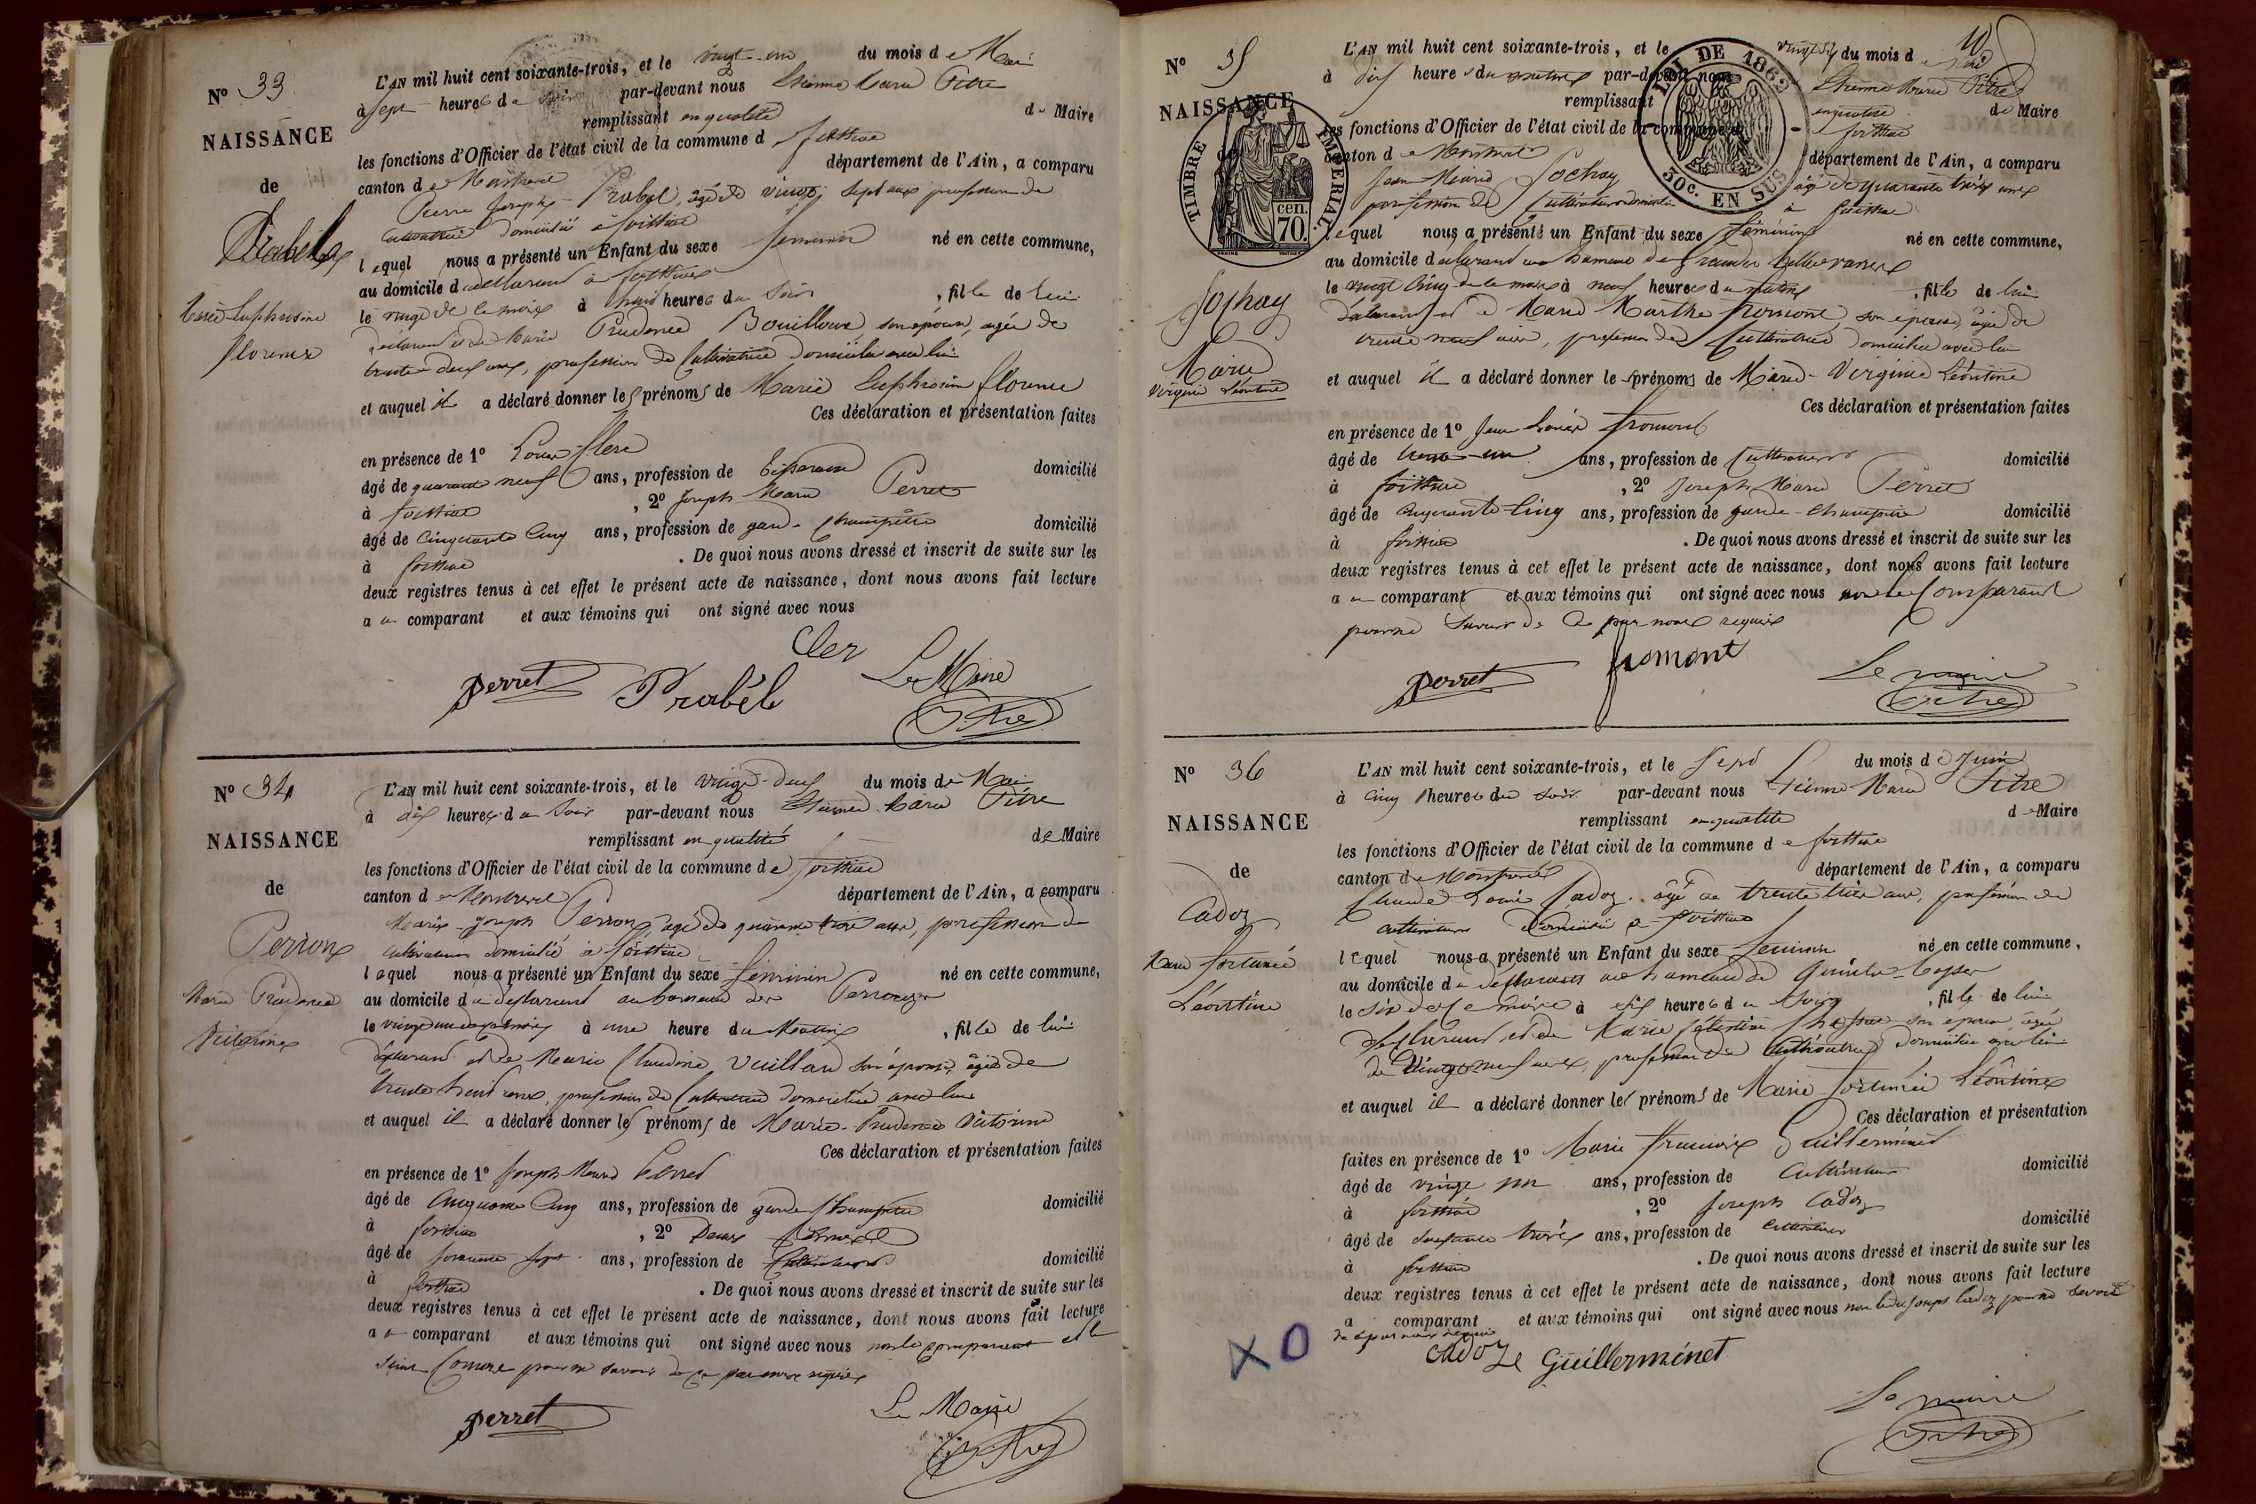 N° 33
NAISSANCE
de
Prabel
Marie Euphrosine
florence
L'AN mil huit cent soixante-trois, et le vingt-un du mois de Mai
à sept heures du soir par-devant nous Etienne Marie Pitre
remplissant en qualité de Maire
les fonctions d'Officier de l'état civil de la commune de
canton de Montrevel département de l'Ain, a comparu
Pierre Joseph Prabel, agé de vingt sept ans profession de
domicilié à
lequel nous a présenté un Enfant du sexe feminin né en cette commune,
au domicile du déclarant à
le vingt de ce mois à heures du soir , fille de lui
déclarant et de Marie Prudence Bouilloux son épouse, agée de
trente deux ans, profession de Cultivatrice domiciliée avec lui
et auquel il a déclaré donner les prénoms de Marie Euphrosine florence
Ces déclaration et présentation faites
en présence de 1°
âgé de quarante neuf ans, profession de domicilié
à , 2° Joseph Marie Perret
âgé de Cinquante Cinq ans, profession de garde-Champêtre domicilié
à . De quoi nous avons dressé et inscrit de suite sur les
deux registres tenus à cet effet le présent acte de naissance, dont nous avons fait lecture
au comparant et aux témoins qui ont signé avec nous
Cler
Perret Prabel Le Maire
Pitre
N° 34
NAISSANCE
de
Perron
Marie Prudence
L'AN mil huit cent soixante-trois, et le vingt-deux du mois de Mai
à dix heures du soir par-devant nous Etienne Marie Pitre
remplissant en qualité de Maire
les fonctions d'Officier de l'état civil de la commune de
canton de Montrevel département de l'Ain, a comparu
Marie Joseph Perron, agé de quarante trois ans, profession de
cultivateur domicilié à
lequel nous a présenté un Enfant du sexe féminin né en cette commune,
au domicile du déclarant au hameau des
le vingt un de ce mois à une heure du Matin , fille de lui
déclarant et de Marie Claudine Vuillard son épouse, âgée de
trente huit ans, profession de Cultivatrice domiciliée avec lui
et auquel il a déclaré donner les prénoms de Marie-Prudence
Ces déclaration et présentation faites
en présence de 1° Joseph Marie Perret
âgé de Cinquante Cinq ans, profession de garde Champêtre domicilié
à , 2° Denis
âgé de soixante sept ans, profession de Cultivateur domicilié
à . De quoi nous avons dressé et inscrit de suite sur les
deux registres tenus à cet effet le présent acte de naissance, dont nous avons fait lecture
au comparant et aux témoins qui ont signé avec nous non le comparant et le
pour ne savoir de ce par nous requis
Perret
Le Maire
Pitre
10
N° 35
NAISSANCE
de
Jochay
Marie
Virginie Léontine
TIMBRE IMPERIAL.
70. cen.
LOI DE 1862
30c. EN SUS
L'AN mil huit cent soixante-trois, et le vingt six du mois de Mai
à dix heures du matin par-devant nous Etienne Marie Pitre
remplissant en qualité de Maire
les fonctions d'Officier de l'état civil de la commune de
canton de Montrevel département de l'Ain, a comparu
Jean Marie Jochay âgé de quarante trois ans
profession de Cultivateur domicilié à
lequel nous a présenté un Enfant du sexe féminin né en cette commune,
au domicile du déclarant au hameau de
le vingt cinq de ce mois à neuf heures du matin , fille de lui
déclarant et de Marie Marthe fromont son épouse, âgée de
trente neuf ans, profession de Cultivatrice domiciliée avec lui
et auquel il a déclaré donner les prénoms de Marie-Virginie Léontine
Ces déclaration et présentation faites
en présence de 1° Jean Louis fromont
âgé de trente-un ans, profession de Cultivateur domicilié
à , 2° Joseph Marie Perret
âgé de Cinquante Cinq ans, profession de garde-champêtre domicilié
à . De quoi nous avons dressé et inscrit de suite sur les
deux registres tenus à cet effet le présent acte de naissance, dont nous avons fait lecture
au comparant et aux témoins qui ont signé avec nous non le Comparant
pour ne savoir de ce par nous requis
Perret fromont Le maire
Pitre
N° 36
NAISSANCE
de
Cadoz
Marie fortunée
Léontine
L'AN mil huit cent soixante-trois, et le sept du mois de Juin
à cinq heures du soir par-devant nous Etienne Marie Pitre
remplissant en qualité de Maire
les fonctions d'Officier de l'état civil de la commune de
canton de Montrevel département de l'Ain, a comparu
Claude Louis Cadoz âgé de trente trois ans, profession de
cultivateur domicilié à
lequel nous a présenté un Enfant du sexe feminin né en cette commune,
au domicile du déclarant au hameau de
le six de ce mois à six heures du soir , fille de lui
déclarant et de Marie son épouse, âgée
de vingt-neuf ans, profession de Cultivatrice domiciliée avec lui
et auquel il a déclaré donner les prénoms de Marie fortunée Léontine
Ces déclaration et présentation
faites en présence de 1° Marie françois Guillerminet
âgé de vingt ans, profession de Cultivateur domicilié
à , 2° Joseph Cadoz
âgé de soixante trois ans, profession de cultivateur domicilié
à . De quoi nous avons dressé et inscrit de suite sur les
deux registres tenus à cet effet le présent acte de naissance, dont nous avons fait lecture
a comparant et aux témoins qui ont signé avec nous non ledit Joseph Cadoz pour ne savoir
de ce par nous requis
XO
Cadoz Guillerménet
Le maire
Pitre